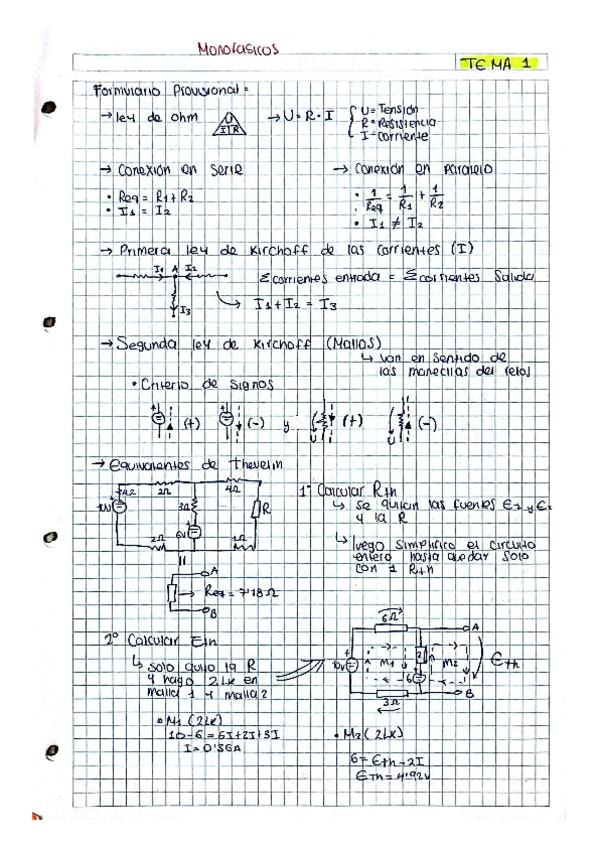 Monofasicos
TEMA 1
Formulario Provisional =
→ ley de ohm U I R → U = R · I { U = Tensión
R = Resistencia
I = Corriente
→ Conexión en serie → Conexión en paralelo
• Req = R1 + R2 • 1/Req = 1/R1 + 1/R2
• I1 = I2 • I1 ≠ I2
→ Primera ley de Kirchoff de las corrientes (I)
I1 A I2 Σ corrientes entrada = Σ corrientes Salida
I3 ↳ I1 + I2 = I3
→ Segunda ley de Kirchoff (Mallas)
↳ van en sentido de
las manecillas del reloj
• Criterio de signos
(+) (-) y (+) (-)
U U
→ Equivalentes de thevenin
2Ω 4Ω
3Ω R
6V
2Ω 1Ω
=
A
→ Req = 7'18Ω
B
1° Calcular Rth
↳ se quitan las fuentes
y la R
↳ luego simplifico el circuito
entero hasta quedar solo
con 1 Rth
2° Calcular Eth
↳ solo quito la R
y hago 2LK en
malla 1 y malla 2
6Ω A
10V M1 2 M2 Eth
6 B
3Ω
• M1 (2LK)
10 - 6 = 6I + 2I + 3I
I = 0'36A
• M2 (2LK)
6 = Eth - 2I